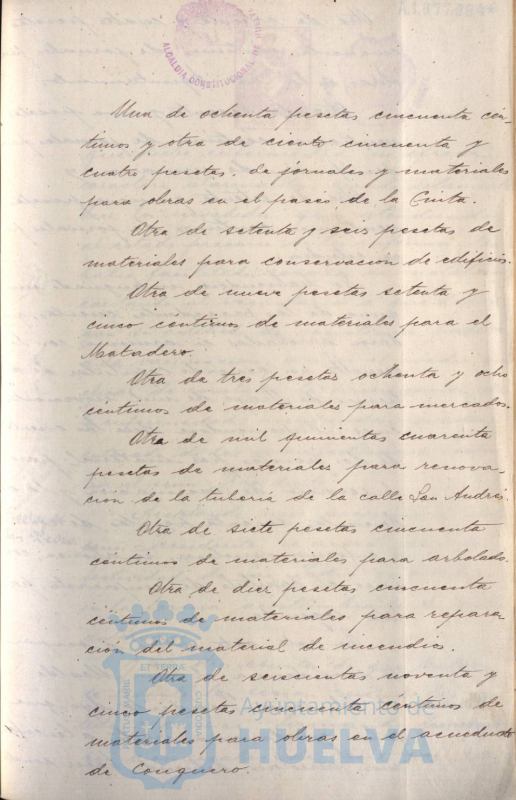 A1.977.994*
ALCALDÍA CONSTITUCIONAL DE
Una de ochenta pesetas cincuenta cén-
timos y otra de ciento cincuenta y
cuatro pesetas. de jornales y materiales
para obras en el paseo de la Cinta.
Otra de setenta y seis pesetas de
materiales para conservacion de edificios.
Otra de nueve pesetas setenta y
cinco céntimos de materiales para el
Matadero.
Otra de tres pesetas ochenta y ocho
centimos de materiales para mercados.
Otra de mil quinientas cuarenta
pesetas de materiales para renova-
cion de la tuberia de la calle San Andrés.
Otra de siete pesetas cincuenta
céntimos de materiales para arbolado.
Otra de diez pesetas cincuenta
centimos de materiales para repara-
ción del material de incendios.
Otra de seiscientas noventa y
cinco pesetas cincuenta céntimos de
materiales para obras en el acueducto
de Conquero.
ET TERRÆ
Ayuntamiento de
HUELVA